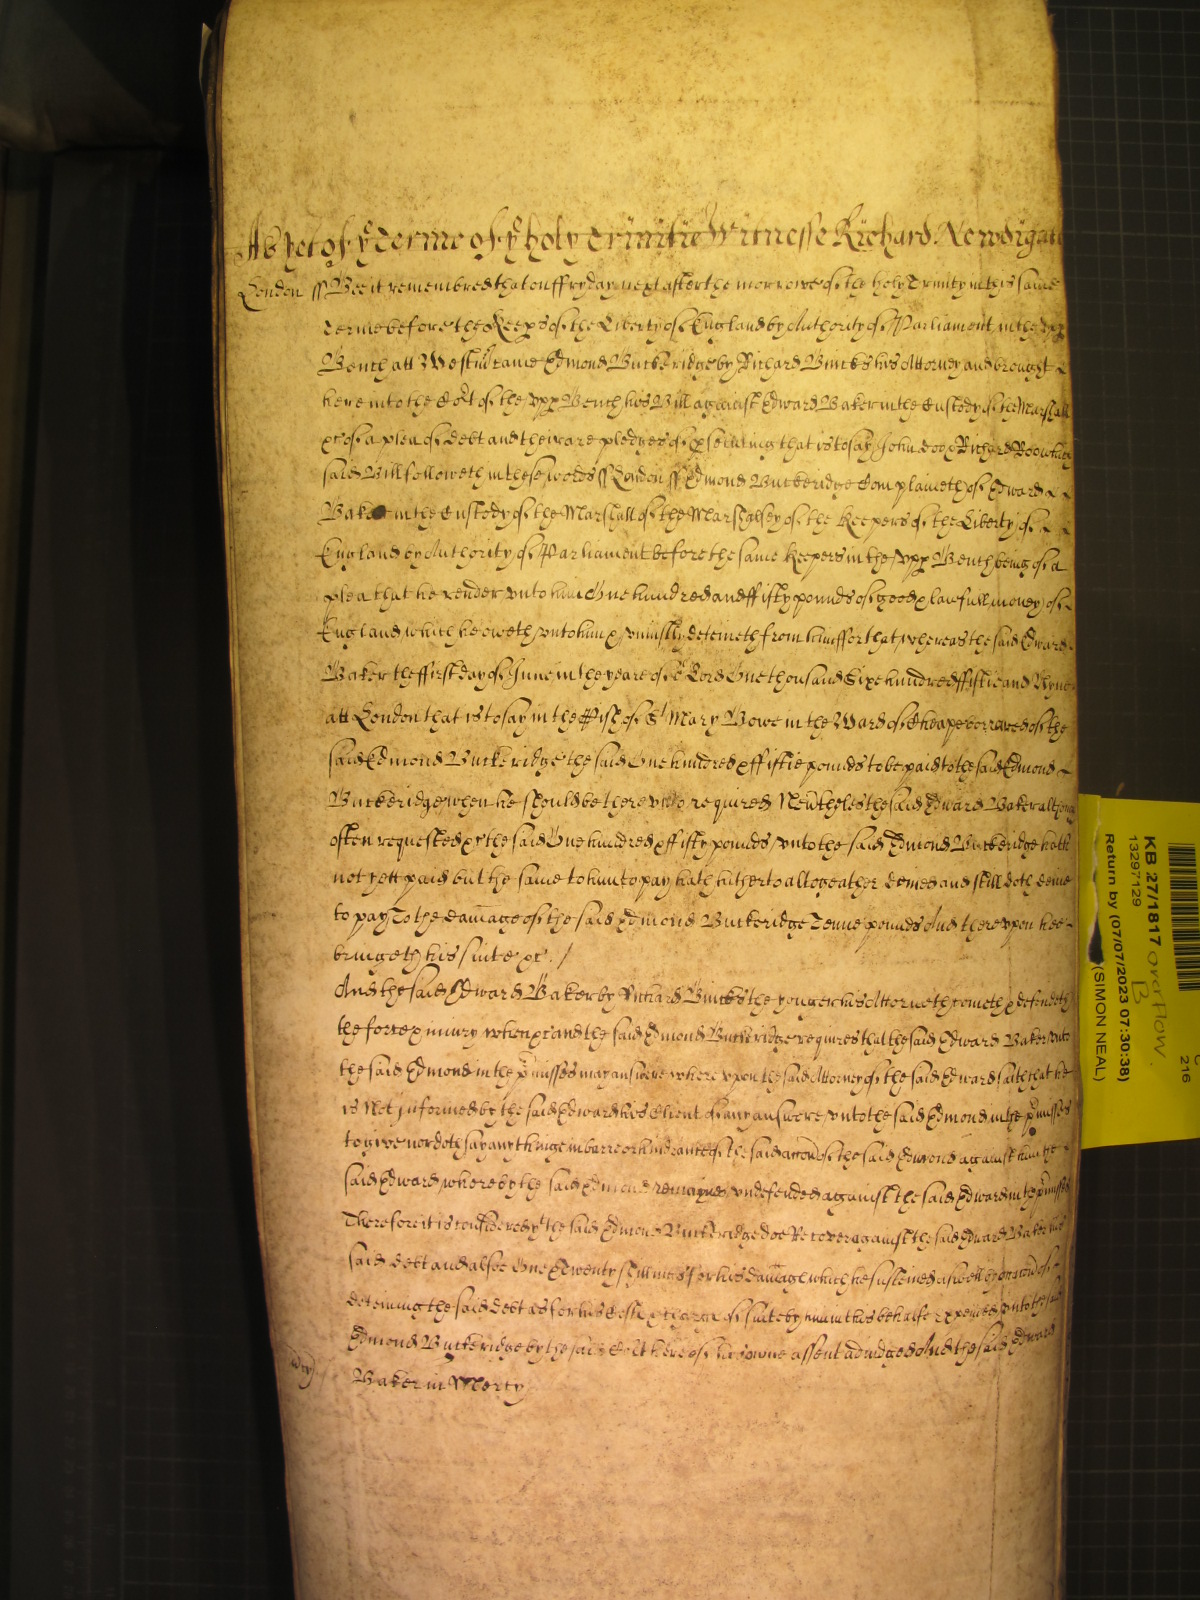 As yet of ye Terme of ye holy Trinitie Witnesse Richard Newdigate
London ss Bee it remembred that on ffryday next after the morrowe of the holy Trinity in this same
Terme before the Keeps of the Liberty of England by Authority of Parliament in the vpp
Bench att Westmr came Edmond Buckeridge by Richard Bincks his Attorney and brought
here into the Cort of the vpp Bench his Bill against Edward Baker in the Custody of the Marshall
&c of a plea of debt and there are pledges of psecuting that is to say John Doo & Richard Roo which
said Bill followeth in these words ss London ss Edmond Buckeridge Complaineth of Edward
Baker in the Custody of the Marshall of the Marshalsey of the Keepers of the Liberty of
England by Authority of Parliament before the same Keepers in the vpp Bench being of a
plea that he render vnto him One hundred and ffifty pounds of good & lawfull money of
England which he oweth vnto him & vniustly deteineth from him ffor that whereas the said Edward
Baker the ffirst day of June in the yeare of or Lord One thousand Sixe hundred ffiftie and Nyne
att London that is to say in the pish of St Mary Bowe in the Ward of Cheape borrowed of the
said Edmond Buckeridge the said One hundred & ffiftie pounds to be paid to the said Edmond
Buckeridge when he should be therevnto required Neutheles the said Edward Baker although
often requested &c the said One hundred & ffifty pounds vnto the said Edmond Buckeridge hath
not yett paid but the same to him to pay hath hitherto altogeather denied and still doth denie
to pay To the damage of the said Edmond Buckeridge Tenne pounds And therevpon hee
bringeth his suite &c /
And the said Edward Baker by Richard Bincks the younger his Attorney cometh & defendeth
the force & iniury when &c and the said Edmond Buckeridge requires that the said Edward Baker vnto
the said Edmond in the pmisses may answere wherevpon the said Attorney of the said Edward saith that he
is Not informed by the said Edward his Client of any answere vnto the said Edmond in the pmisses
to give nor doth say any thinge in barre or hindrance of the said accon of the said Edmond against him the
said Edward whereby the said Edmond remaynes vndefended against the said Edward in the pmisses
Therefore it is considered yt the said Edmond Buckeridge doe Recover against the said Edward Baker his
said debt and alsoe One & Twenty shillings for his damage which he susteined aswell by occacon of
deteining the said debt as for his Costs & charges of suite by him in this behalfe expended vnto the said
Edmond Buckeridge by the said Cort here of his owne assent adiudged And the said Edward
mcy
Baker in Mercy
KB 27/1817 overflow
B
13297129
Return by (07/07/2023 07:30:38)
(SIMON NEAL)
216